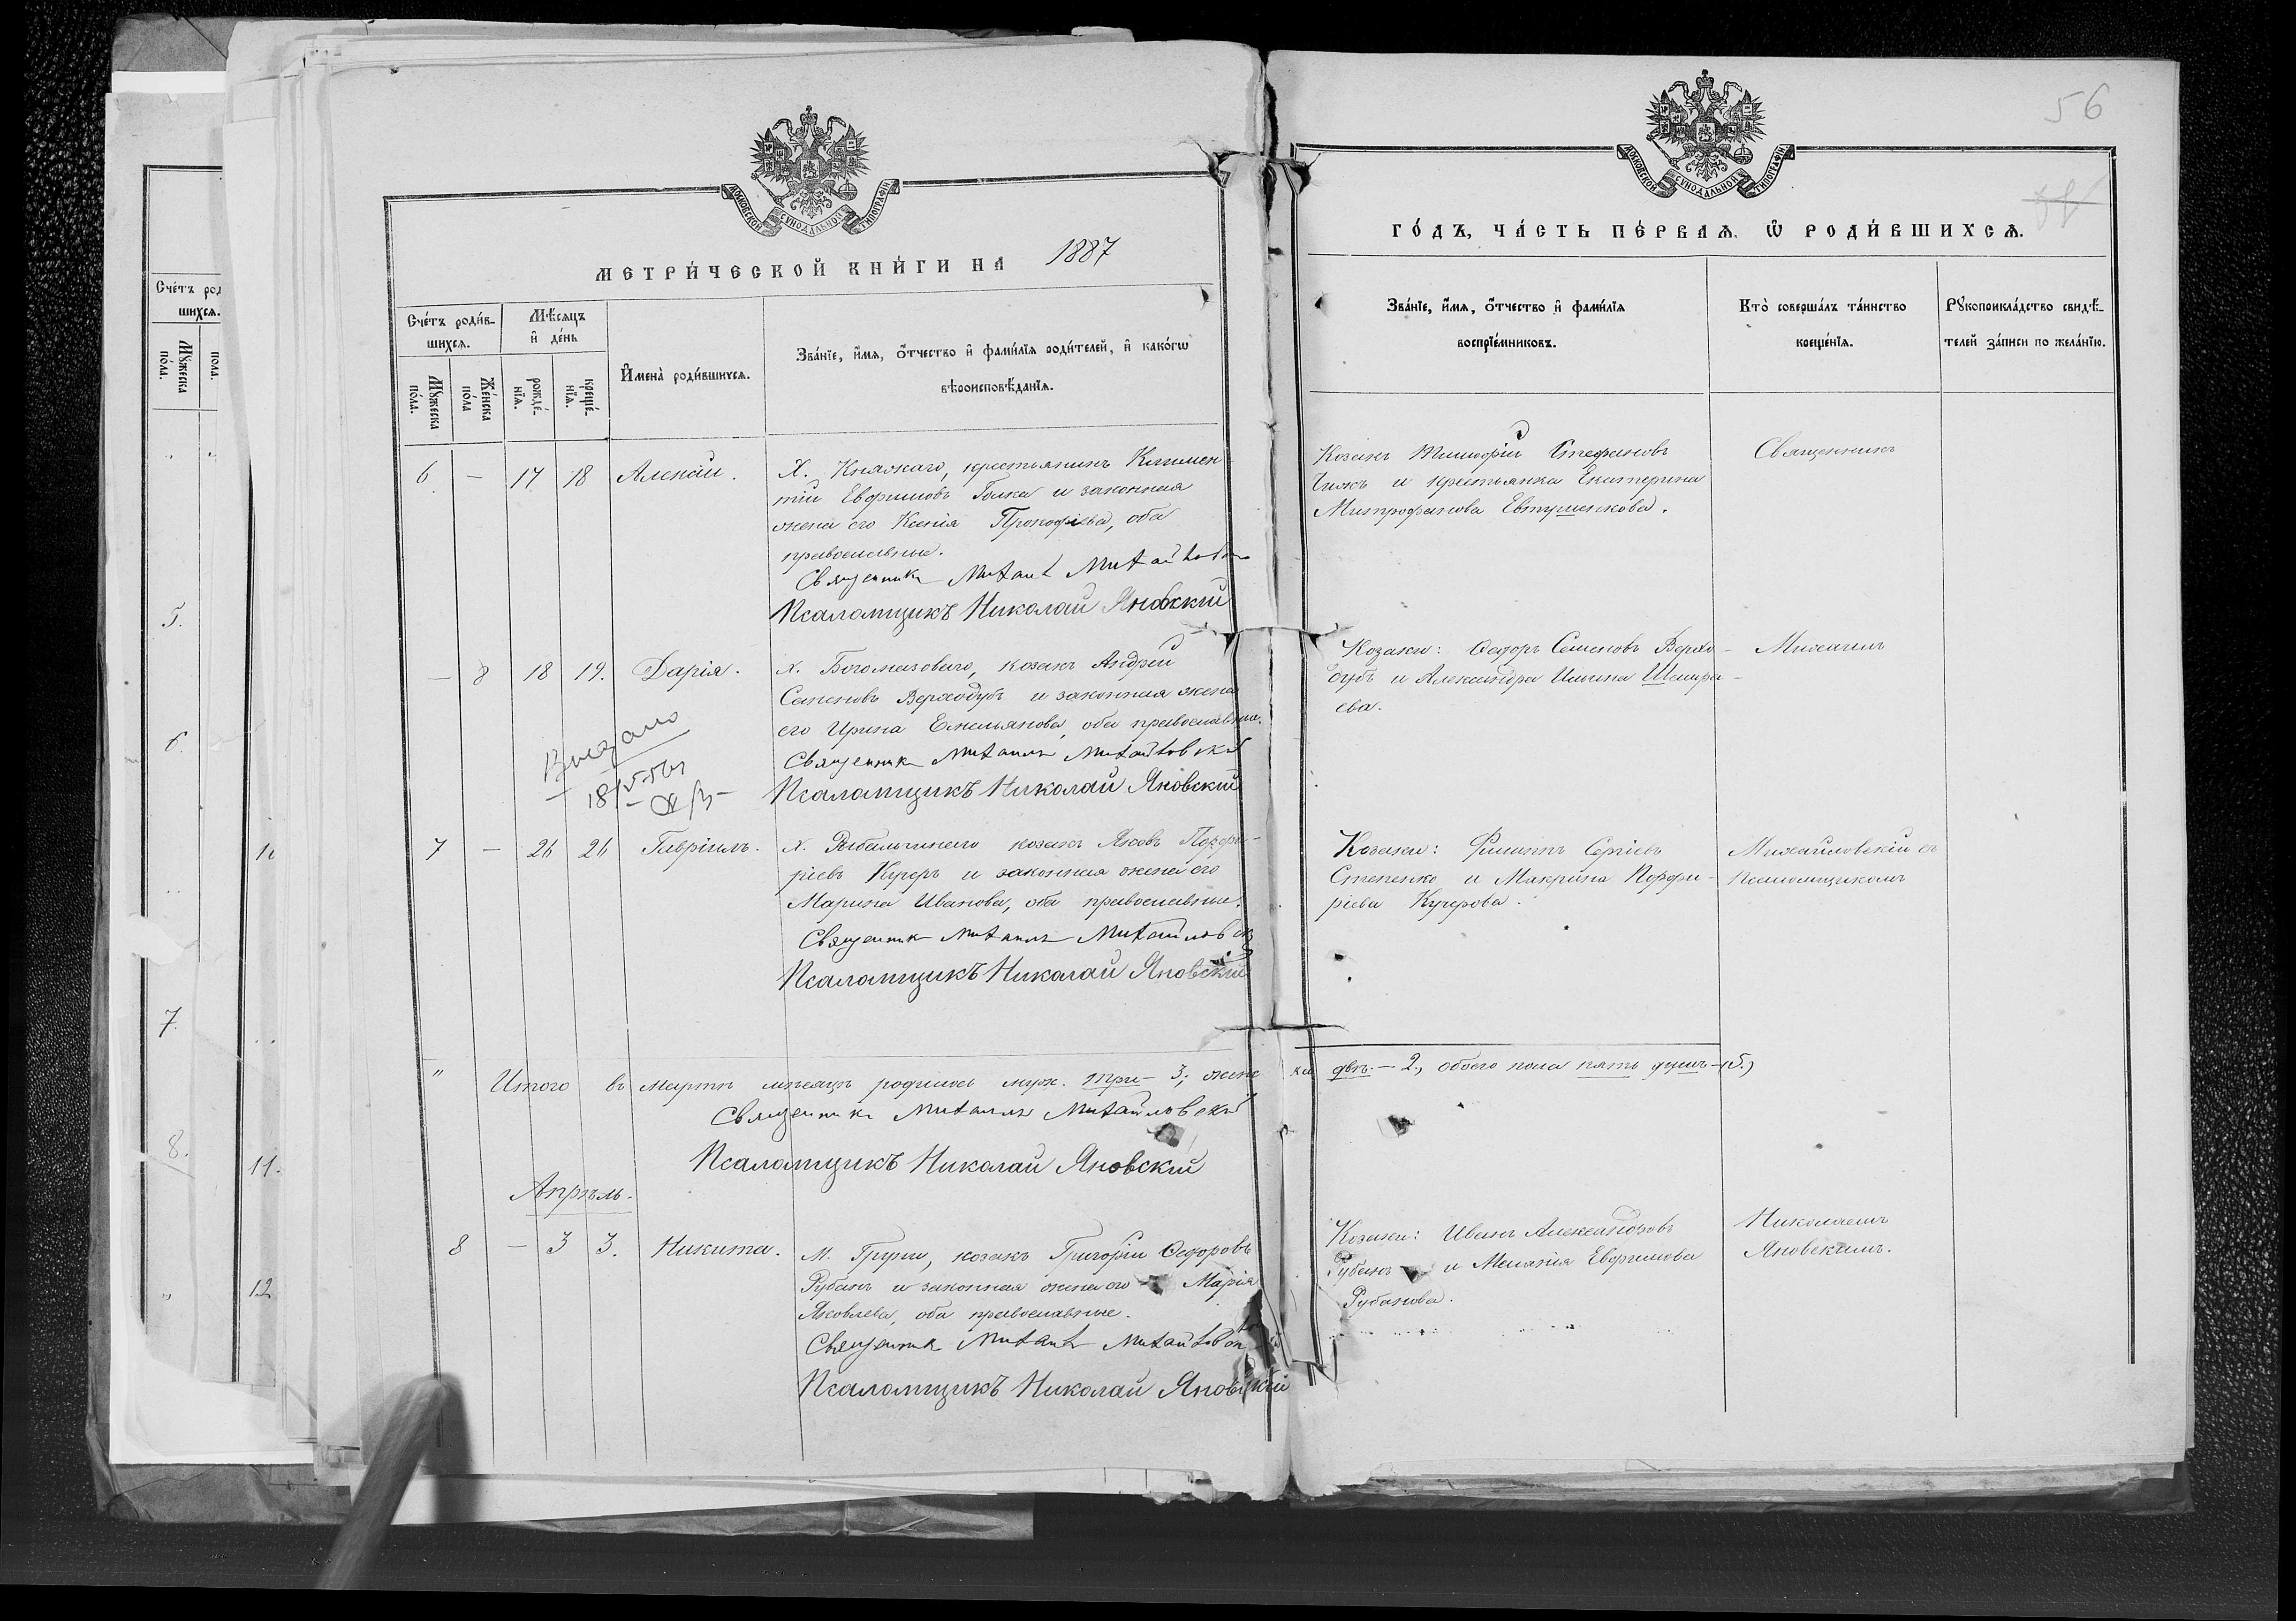 МОСКОВСКОЙ СѴНОДАЛЬНОЙ ТИПОГРАФІИ
МЕТРИ́ЧЕСКОЙ КНИ́ГИ НА 1887
Сче́тъ роди́в-
шихсѧ.
Мѣ́сѧцъ
и҆ де́нь
Мꙋ́жеска
по́ла.
Же́нска
по́ла
рожде́-
нїѧ.
креще́-
нїѧ.
И҆мена̀ роди́вшихсѧ.
Зва́нїе, и҆́мѧ, ѻ҆́тчество и҆ фами́лїѧ роди́телей, и҆ како́гѡ
вѣроисповѣ́данїѧ.
6 — 17 18 Алексій.
Х. Княжаго, крестьянинъ Климен-
тій Евфимовъ Голка и законная
жена его Ксенія Прокофіева, оба
православные.
Священникъ Михаилъ Михайловскій
Псаломщикъ Николай Яновскій
— 8 18 19. Дарія.
х. Богомазоваго, козакъ Андрей
Семеновъ Верходубъ и законная жена
его Ирина Емельянова, оба православные.
Священникъ Михаилъ Михайловскій
Псаломщикъ Николай Яновскій
Видано
7 — 26 26 Гавріилъ.
х. Рыбальчинаго козакъ Яковъ Порфи-
ріевъ Кучеръ и законная жена его
Марина Иванова, оба православные.
Священникъ Михаилъ Михайловскій
Псаломщикъ Николай Яновскій
" Итого въ мартѣ мѣсяцѣ родилось муж. три — 3; женс
Священникъ Михаилъ Михайловскій
Псаломщикъ Николай Яновскій
Апрѣль.
8 — 3 3. Никита.
М. Груни, козакъ Григорій Федоровъ
Рубанъ и законная жена его Марія
Яковлева, оба православные.
Священникъ Михаилъ Михайловскій
Псаломщикъ Николай Яновскій
56
МОСКОВСКОЙ СѴНОДАЛЬНОЙ ТИПОГРАФІИ
ГО́ДЪ, ЧА́СТЬ ПЕ́РВАѦ, Ѡ҆ РОДИ́ВШИХСѦ.
Зва́нїе, и҆́мѧ, ѻ҆́тчество и҆ фами́лїѧ
воспрїе́мниковъ.
Кто̀ соверша́лъ та́инство
креще́нїѧ.
Рꙋкоприкла́дство свидѣ́-
телей за́писи по жела́нїю.
Козакъ Тимофей Стефановъ
Чижъ и крестьянка Екатерина
Митрофанова Евтушенкова.
Священникъ
Козаки: Федоръ Семеновъ Верхо-
дубъ и Александра
ева.
Михаилъ
Козаки: Филиппъ Сергіевъ
Степенко и Макрина Порфи-
ріева Кучерова.
Михайловскій съ
псаломщикомъ
ки двѣ. — 2, обоего пола пять душъ — (5.)
Козаки: Иванъ Александровъ
Рубанъ и Меланія Евфимова
Рубанова.
Николаемъ
Яновскимъ.
Сче́тъ род
шихсѧ.
Мꙋ́жеска
по́ла.
пола.
5.
6.
7.
8.
11.
12